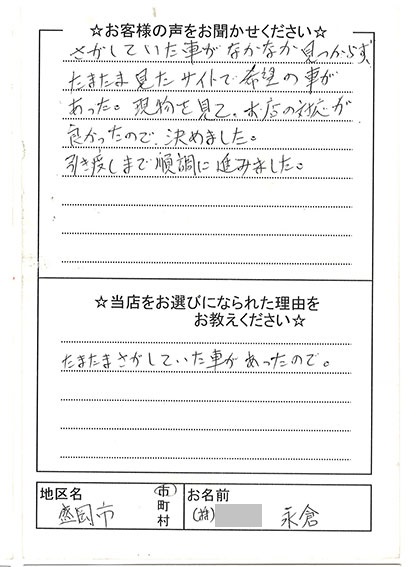 ☆お客様の声をお聞かせください☆
さがしていた車がなかなか見つからず、
たまたま見たサイトで希望の車が
あった。現物を見て、お店の対応が
良かったので、決めました。
引き渡しまで順調に進みました。
☆当店をお選びになられた理由を
お教えください☆
たまたまさがしていた車があったので。
地区名
盛岡市
市
町
村
お名前
(株) 永倉